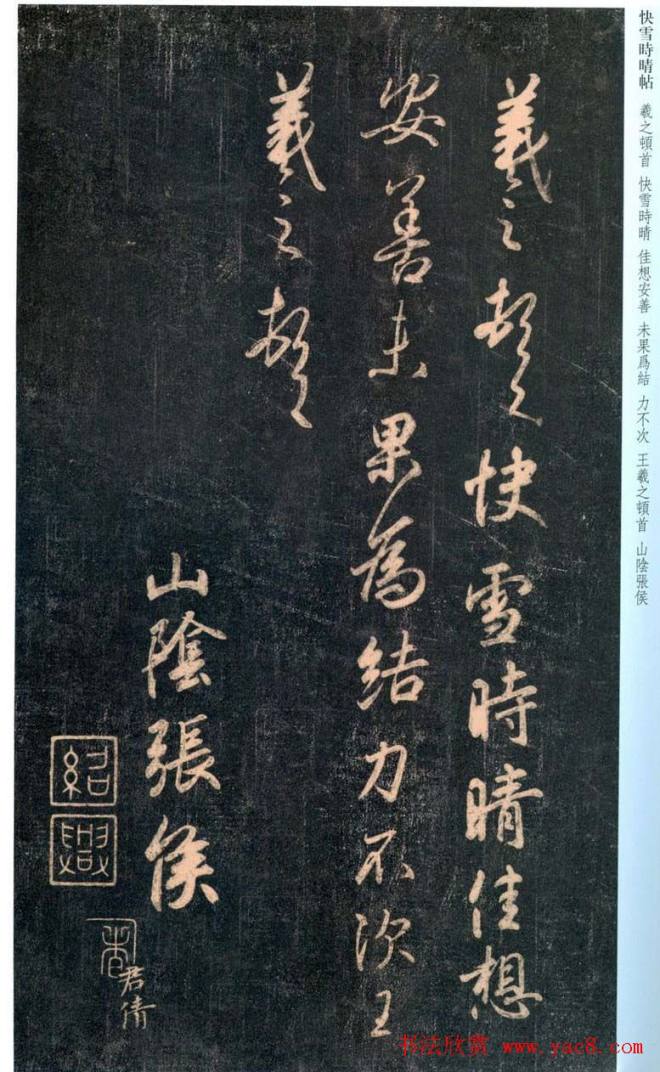 快雪時晴帖 羲之頓首 快雪時晴 佳想安善 未果爲結 力不次 王羲之頓首 山陰張侯
羲之頓首快雪時晴佳想
安善未果為結力不次王
羲之頓首
山陰張侯
紹興
君倩
书法欣赏 www.yac8.com